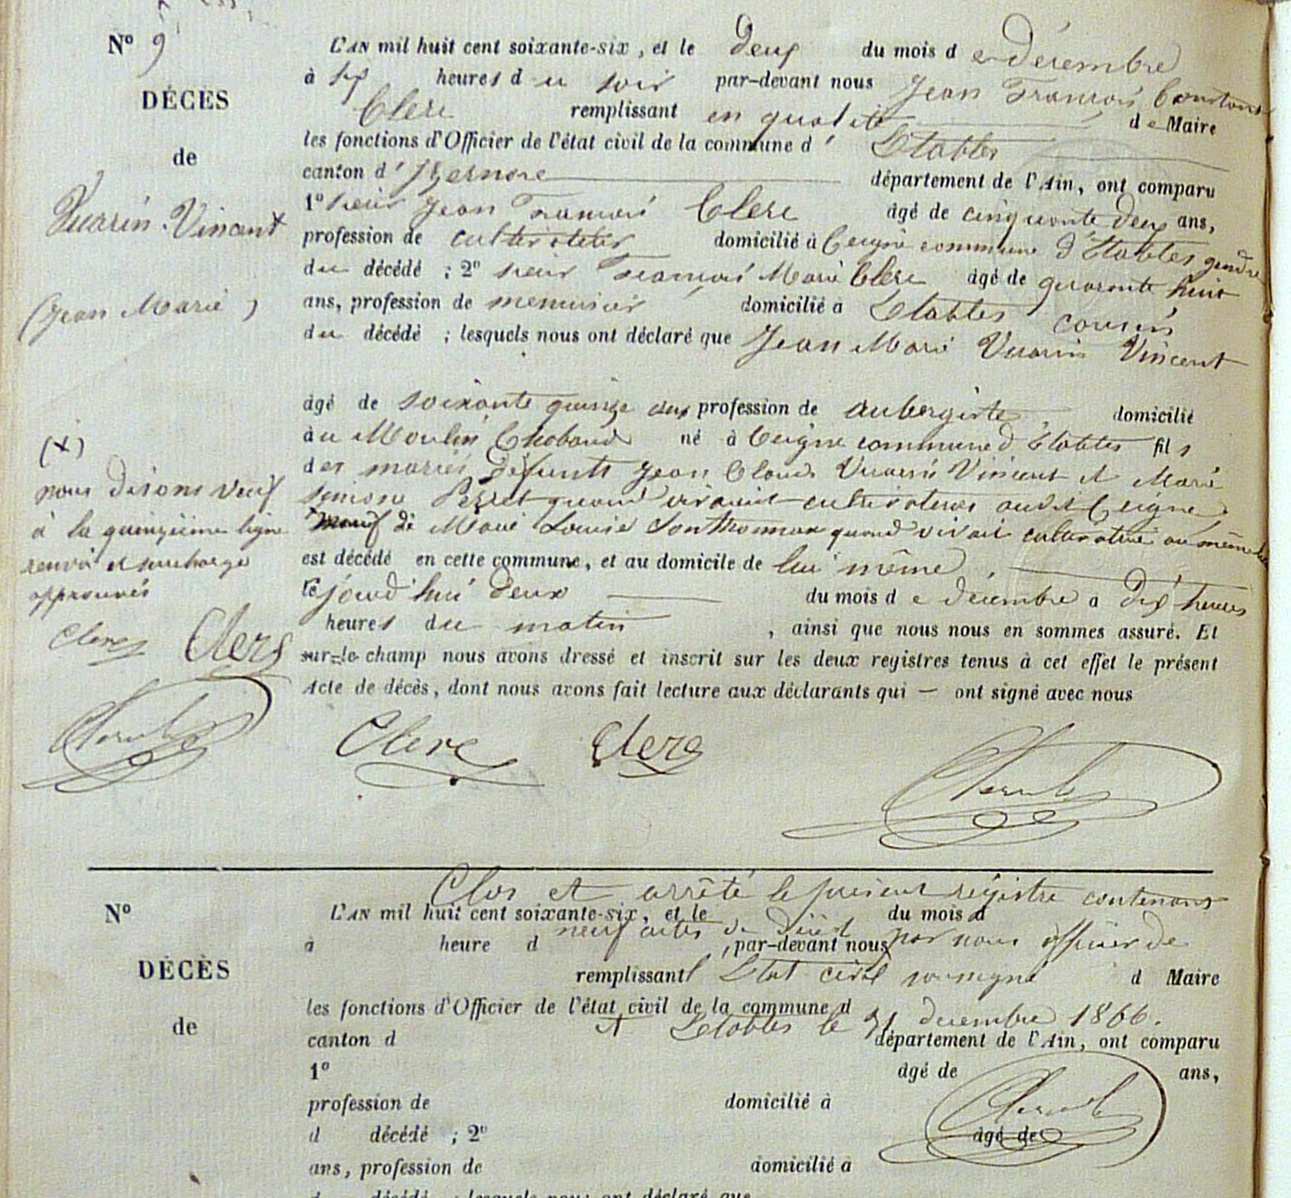 N° 9
DÉCES
de
Vuarin-Vincent
(Jean Marie)
L'AN mil huit cent soixante-six, et le deux du mois de décembre
à six heures du soir par-devant nous Jean François Constant
Clerc remplissant en qualité de Maire
les fonctions d'Officier de l'état civil de la commune d'Etables
canton d'Izernore département de l'Ain, ont comparu
1° sieur Jean François Clerc âgé de cinquante deux ans,
profession de cultivateur domicilié à Ceigne commune d'Etables gendre
du décédé ; 2° sieur François Marie Clerc âgé de quarante huit
ans, profession de menuisier domicilié à Etables cousin
du décédé ; lesquels nous ont déclaré que Jean Marie Vuarin Vincent
âgé de soixante quinze ans profession de aubergiste domicilié
au Moulin Chabaud né à Ceigne commune d'Etables fils
des mariés défunts Jean Claude Vuarin Vincent et Marie
Perret quand vivaient cultivateurs audit Ceigne
veuf de Marie Louise Sonthonnax quand vivait cultivatrice au même lieu
est décédé en cette commune, et au domicile de lui même
ce jourd'hui deux du mois de décembre à dix heures
heures du matin, ainsi que nous nous en sommes assuré. Et
sur-le-champ nous avons dressé et inscrit sur les deux registres tenus à cet effet le présent
Acte de décès, dont nous avons fait lecture aux déclarants qui — ont signé avec nous
(x)
nous disons veuf
à la quinzième ligne
renvoi et surcharge
approuvés
Clerc Clerc
Clerc Clerc
Clos et arrêté le présent régistre contenant
neuf actes de décès par nous officier de
l'Etat civil soussigné
à Etables le 31 décembre 1866.
N°
DÉCÈS
de
L'AN mil huit cent soixante-six, et le du mois d
à heure d , par-devant nous
remplissant d Maire
les fonctions d'Officier de l'état civil de la commune d
canton d département de l'Ain, ont comparu
1° âgé de ans,
profession de domicilié à
d décédé ; 2° âgé de
ans, profession de domicilié à
d décédé ; lesquels nous ont déclaré que